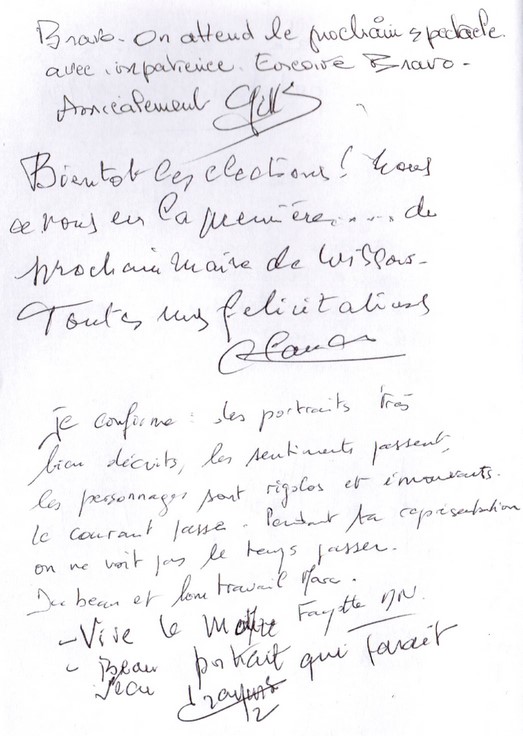 Bravo. On attend le prochain spectacle
avec impatience. Encore Bravo -
Amicalement
Bientôt les elections ! Nous
avons en la première..... du
prochain Maire de Wissous -
Toutes mes felicitations
Je confirme : des portraits très
bien décrits, les sentiments passent,
les personnages sont rigolos et émouvants.
le courant passe. Pendant ta représentation
on ne voit pas le temps passer.
Du beau et bon travail Marc.
Fayette
- Vive le
- Beau portrait qui